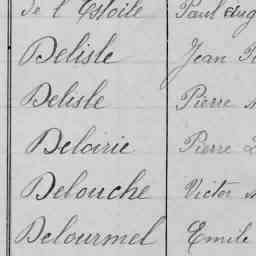 de l'Estoile Paul Eug
Delisle Jean
Delisle Pierre
Deloirie Pierre
Delouche Victor
Delourmel Emile